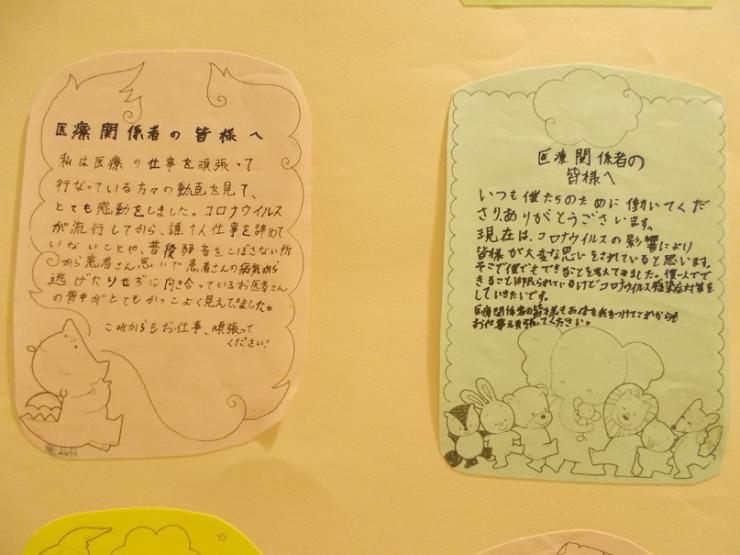 医療関係者の皆様へ
私は医療の仕事を頑張って
行なっている方々の動画を見て、
とても感動をしました。コロナウイルス
が流行してから、誰1人仕事を辞めて
いないことや、普段弱音をこぼさない所
から患者さん思いで患者さんの病気から
逃げたりせずに向き合っているお医者さん
の背中がとてもかっこよく見えてました。
これからもお仕事、頑張って
ください!
医療関係者の
皆様へ
いつも僕たちのために働いてくだ
さり、ありがとうございます。
現在は、コロナウイルスの影響により
皆様が大変な思いをされていると思います。
そこで僕でもできることを考えてみました。僕一人でで
きることは限られているけどコロナウイルス感染症対策を
していきたいです。
医療関係者の皆様もお体を気をつけてこれからも
お仕事頑張ってください。